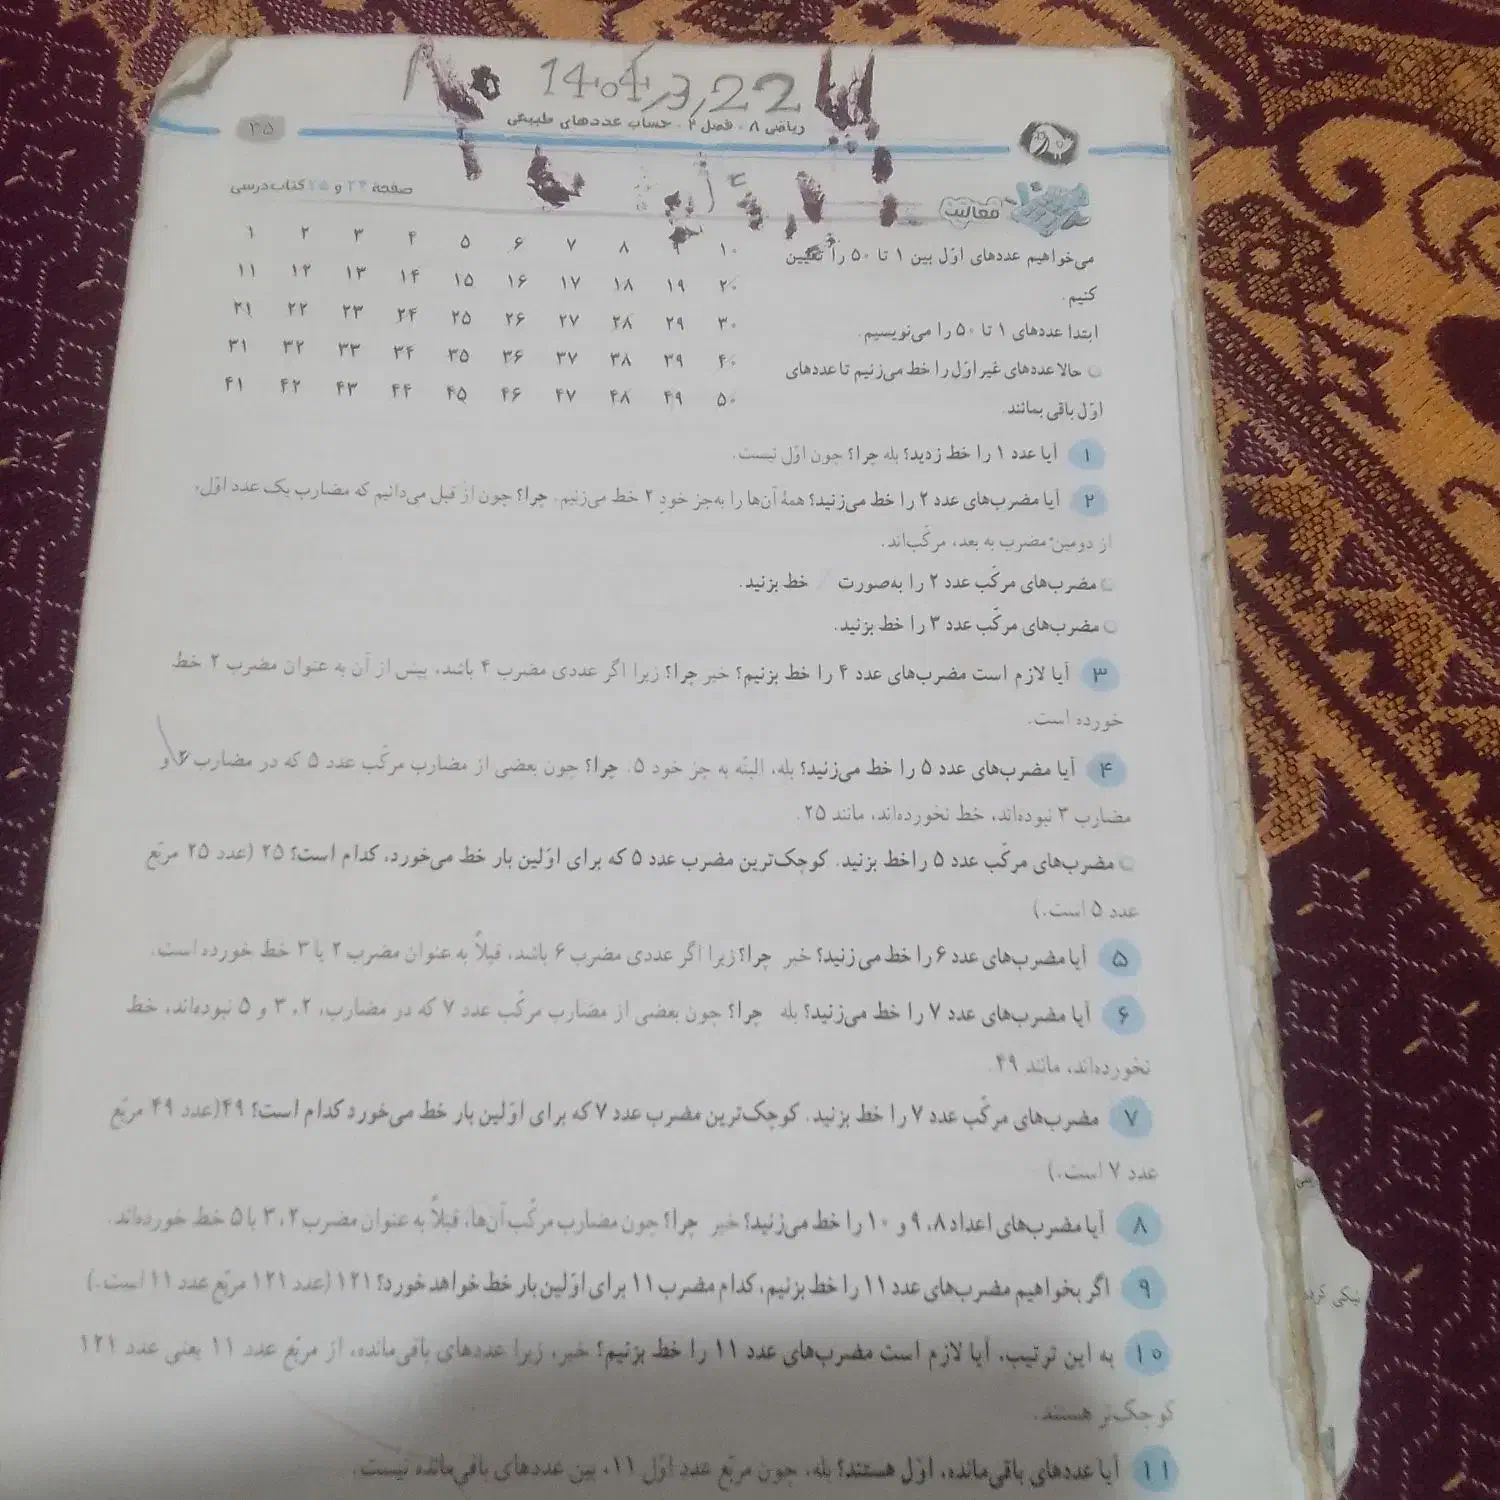 14048,22
ریاضی ۸ - فصل ۲ - حساب عددهای طبیعی
۳۵
فعالیت
صفحهٔ ۲۴ و ۲۵ کتاب درسی
۱ ۲ ۳ ۴ ۵ ۶ ۷ ۸ ۹ ۱۰
می‌خواهیم عددهای اوّل بین ۱ تا ۵۰ را تعیین
۱۱ ۱۲ ۱۳ ۱۴ ۱۵ ۱۶ ۱۷ ۱۸ ۱۹ ۲۰
کنیم.
۲۱ ۲۲ ۲۳ ۲۴ ۲۵ ۲۶ ۲۷ ۲۸ ۲۹ ۳۰
ابتدا عددهای ۱ تا ۵۰ را می‌نویسیم.
۳۱ ۳۲ ۳۳ ۳۴ ۳۵ ۳۶ ۳۷ ۳۸ ۳۹ ۴۰
حالا عددهای غیر اوّل را خط می‌زنیم تا عددهای
۴۱ ۴۲ ۴۳ ۴۴ ۴۵ ۴۶ ۴۷ ۴۸ ۴۹ ۵۰
اوّل باقی بمانند.
۱ آیا عدد ۱ را خط زدید؟ بله چرا؟ چون اوّل نیست.
۲ آیا مضرب‌های عدد ۲ را خط می‌زنید؟ همهٔ آن‌ها را به‌جز خودِ ۲ خط می‌زنیم. چرا؟ چون از قبل می‌دانیم که مضارب یک عدد اوّل،
از دومین مضرب به بعد، مرکّب‌اند.
مضرب‌های مرکّب عدد ۲ را به‌صورت / خط بزنید.
مضرب‌های مرکّب عدد ۳ را خط بزنید.
۳ آیا لازم است مضرب‌های عدد ۴ را خط بزنیم؟ خیر چرا؟ زیرا اگر عددی مضرب ۴ باشد، پیش از آن به عنوان مضرب ۲ خط
خورده است.
۴ آیا مضرب‌های عدد ۵ را خط می‌زنید؟ بله، البتّه به جز خود ۵. چرا؟ چون بعضی از مضارب مرکّب عدد ۵ که در مضارب ۲ و
مضارب ۳ نبوده‌اند، خط نخورده‌اند، مانند ۲۵.
مضرب‌های مرکّب عدد ۵ را خط بزنید. کوچک‌ترین مضرب عدد ۵ که برای اوّلین بار خط می‌خورد، کدام است؟ ۲۵ (عدد ۲۵ مربّع
عدد ۵ است.)
۵ آیا مضرب‌های عدد ۶ را خط می‌زنید؟ خیر چرا؟ زیرا اگر عددی مضرب ۶ باشد، قبلاً به عنوان مضرب ۲ یا ۳ خط خورده است.
۶ آیا مضرب‌های عدد ۷ را خط می‌زنید؟ بله چرا؟ چون بعضی از مضارب مرکّب عدد ۷ که در مضارب، ۲، ۳ و ۵ نبوده‌اند، خط
نخورده‌اند، مانند ۴۹.
۷ مضرب‌های مرکّب عدد ۷ را خط بزنید. کوچک‌ترین مضرب عدد ۷ که برای اوّلین بار خط می‌خورد کدام است؟ ۴۹ (عدد ۴۹ مربّع
عدد ۷ است.)
۸ آیا مضرب‌های اعداد ۸، ۹ و ۱۰ را خط می‌زنید؟ خیر چرا؟ چون مضارب مرکّب آن‌ها، قبلاً به عنوان مضرب ۲، ۳ یا ۵ خط خورده‌اند.
۹ اگر بخواهیم مضرب‌های عدد ۱۱ را خط بزنیم، کدام مضرب ۱۱ برای اوّلین بار خط خواهد خورد؟ ۱۲۱ (عدد ۱۲۱ مربّع عدد ۱۱ است.)
۱۰ به این ترتیب، آیا لازم است مضرب‌های عدد ۱۱ را خط بزنیم؟ خیر، زیرا عددهای باقی‌مانده، از مربّع عدد ۱۱ یعنی عدد ۱۲۱
کوچک‌تر هستند.
۱۱ آیا عددهای باقی‌مانده، اوّل هستند؟ بله، چون مربّع عدد اوّل ۱۱، بین عددهای باقی‌مانده نیست.